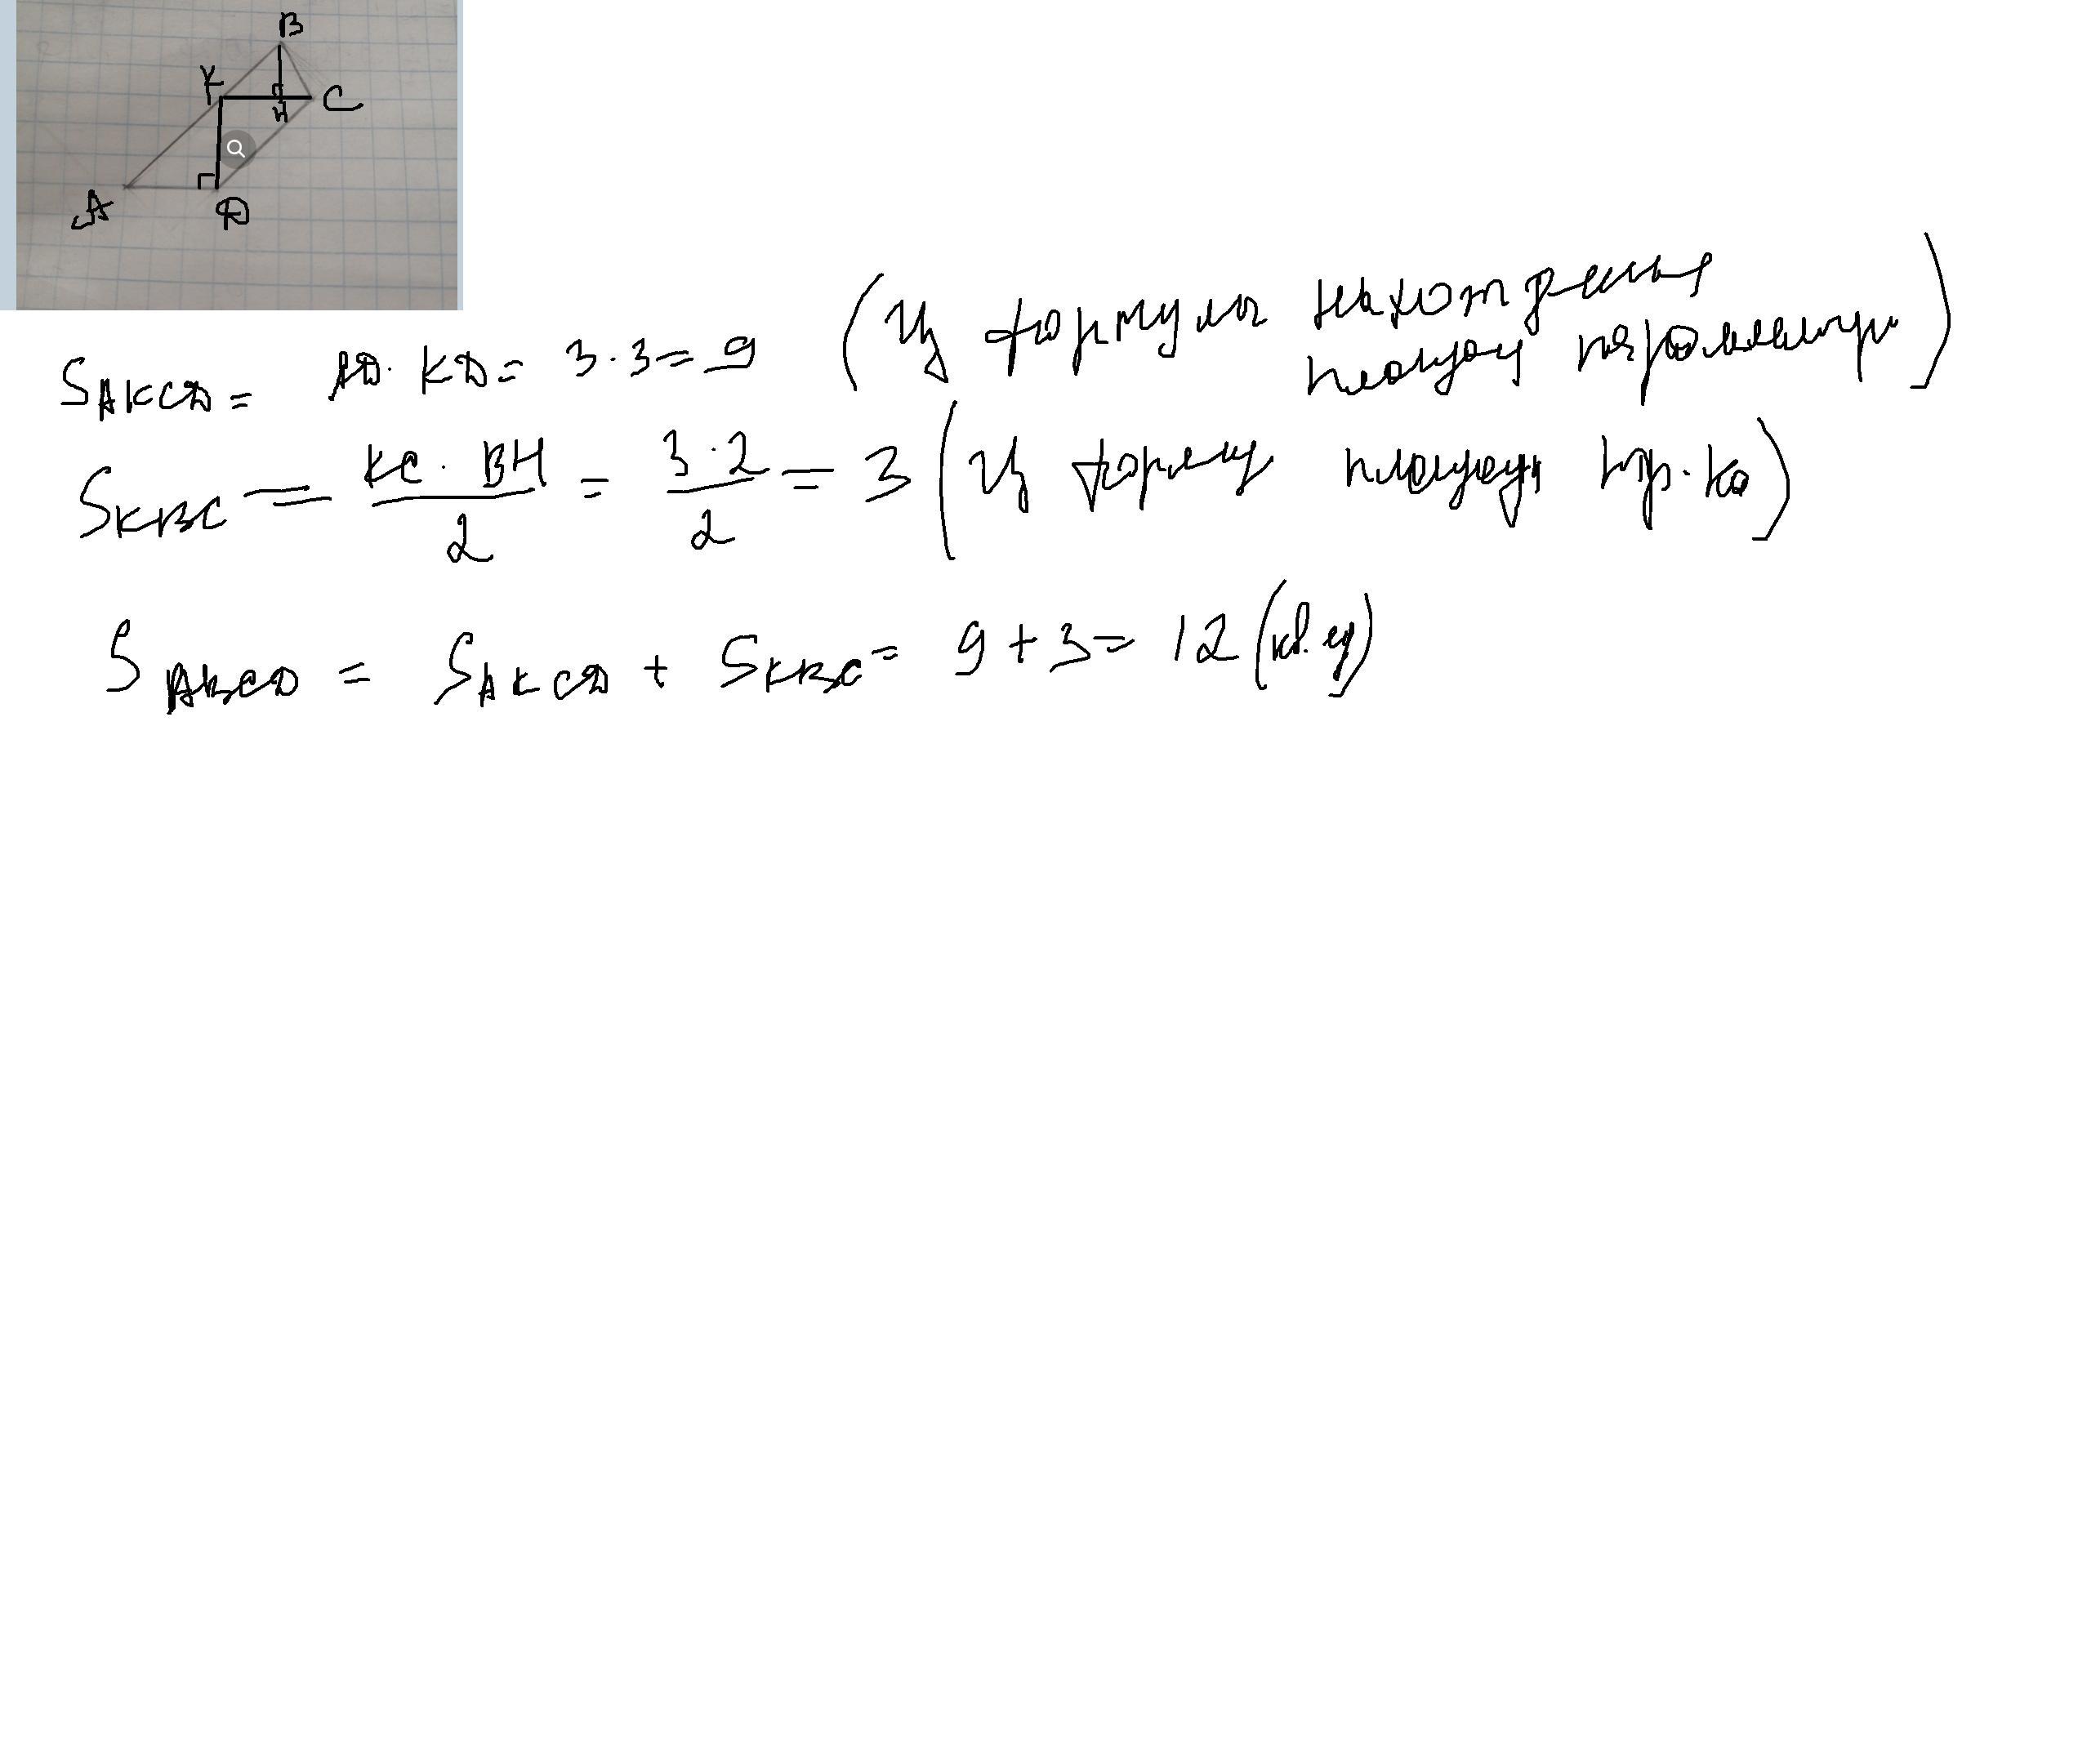 B
K
C
H
A
D
S AKCD = AD · KD = 3 · 3 = 9 (Из формулы нахождения
площади
S KBC = KC · BH / 2 = 3 · 2 / 2 = 3 (Из площади тр.-ка)
S ABCD = S AKCD + S KBC = 9 + 3 = 12 (кв. ед)